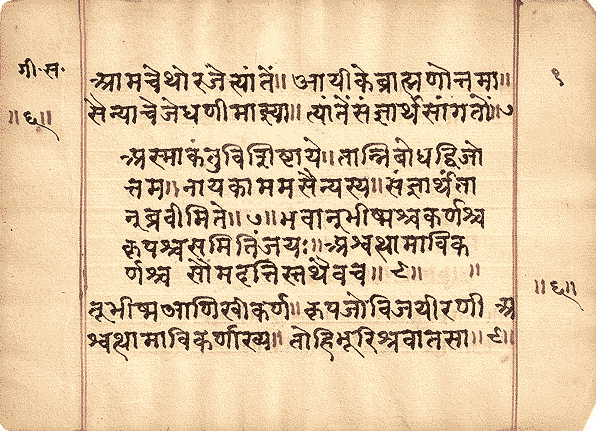 गी. स. आमचे थोर जे त्यांतें॥ आयीके ब्राह्मणोत्तमा॥ १
॥६॥ सैन्याचे जे धणी माझ्या॥ त्यांतें संज्ञार्थ सांगतों॥७
अस्माकंतुविशिष्टाये॥तान्निबोधद्विजो
त्तम॥नायकाममसैन्यस्य॥संज्ञार्थंता
न्ब्रवीमिते॥७॥भवान्भीष्मश्चकर्णश्च
कृपश्चसमितिंजयः॥अश्वत्थामाविक
र्णश्च सौमदत्तिस्तथैवच॥ ८॥ ॥
तूभीष्मआणिखीकर्ण॥कृपजोविजयीरणी अ ॥६॥
श्वत्थामाविकर्णाख्य॥तोहिभूरिश्रवातसा॥८॥